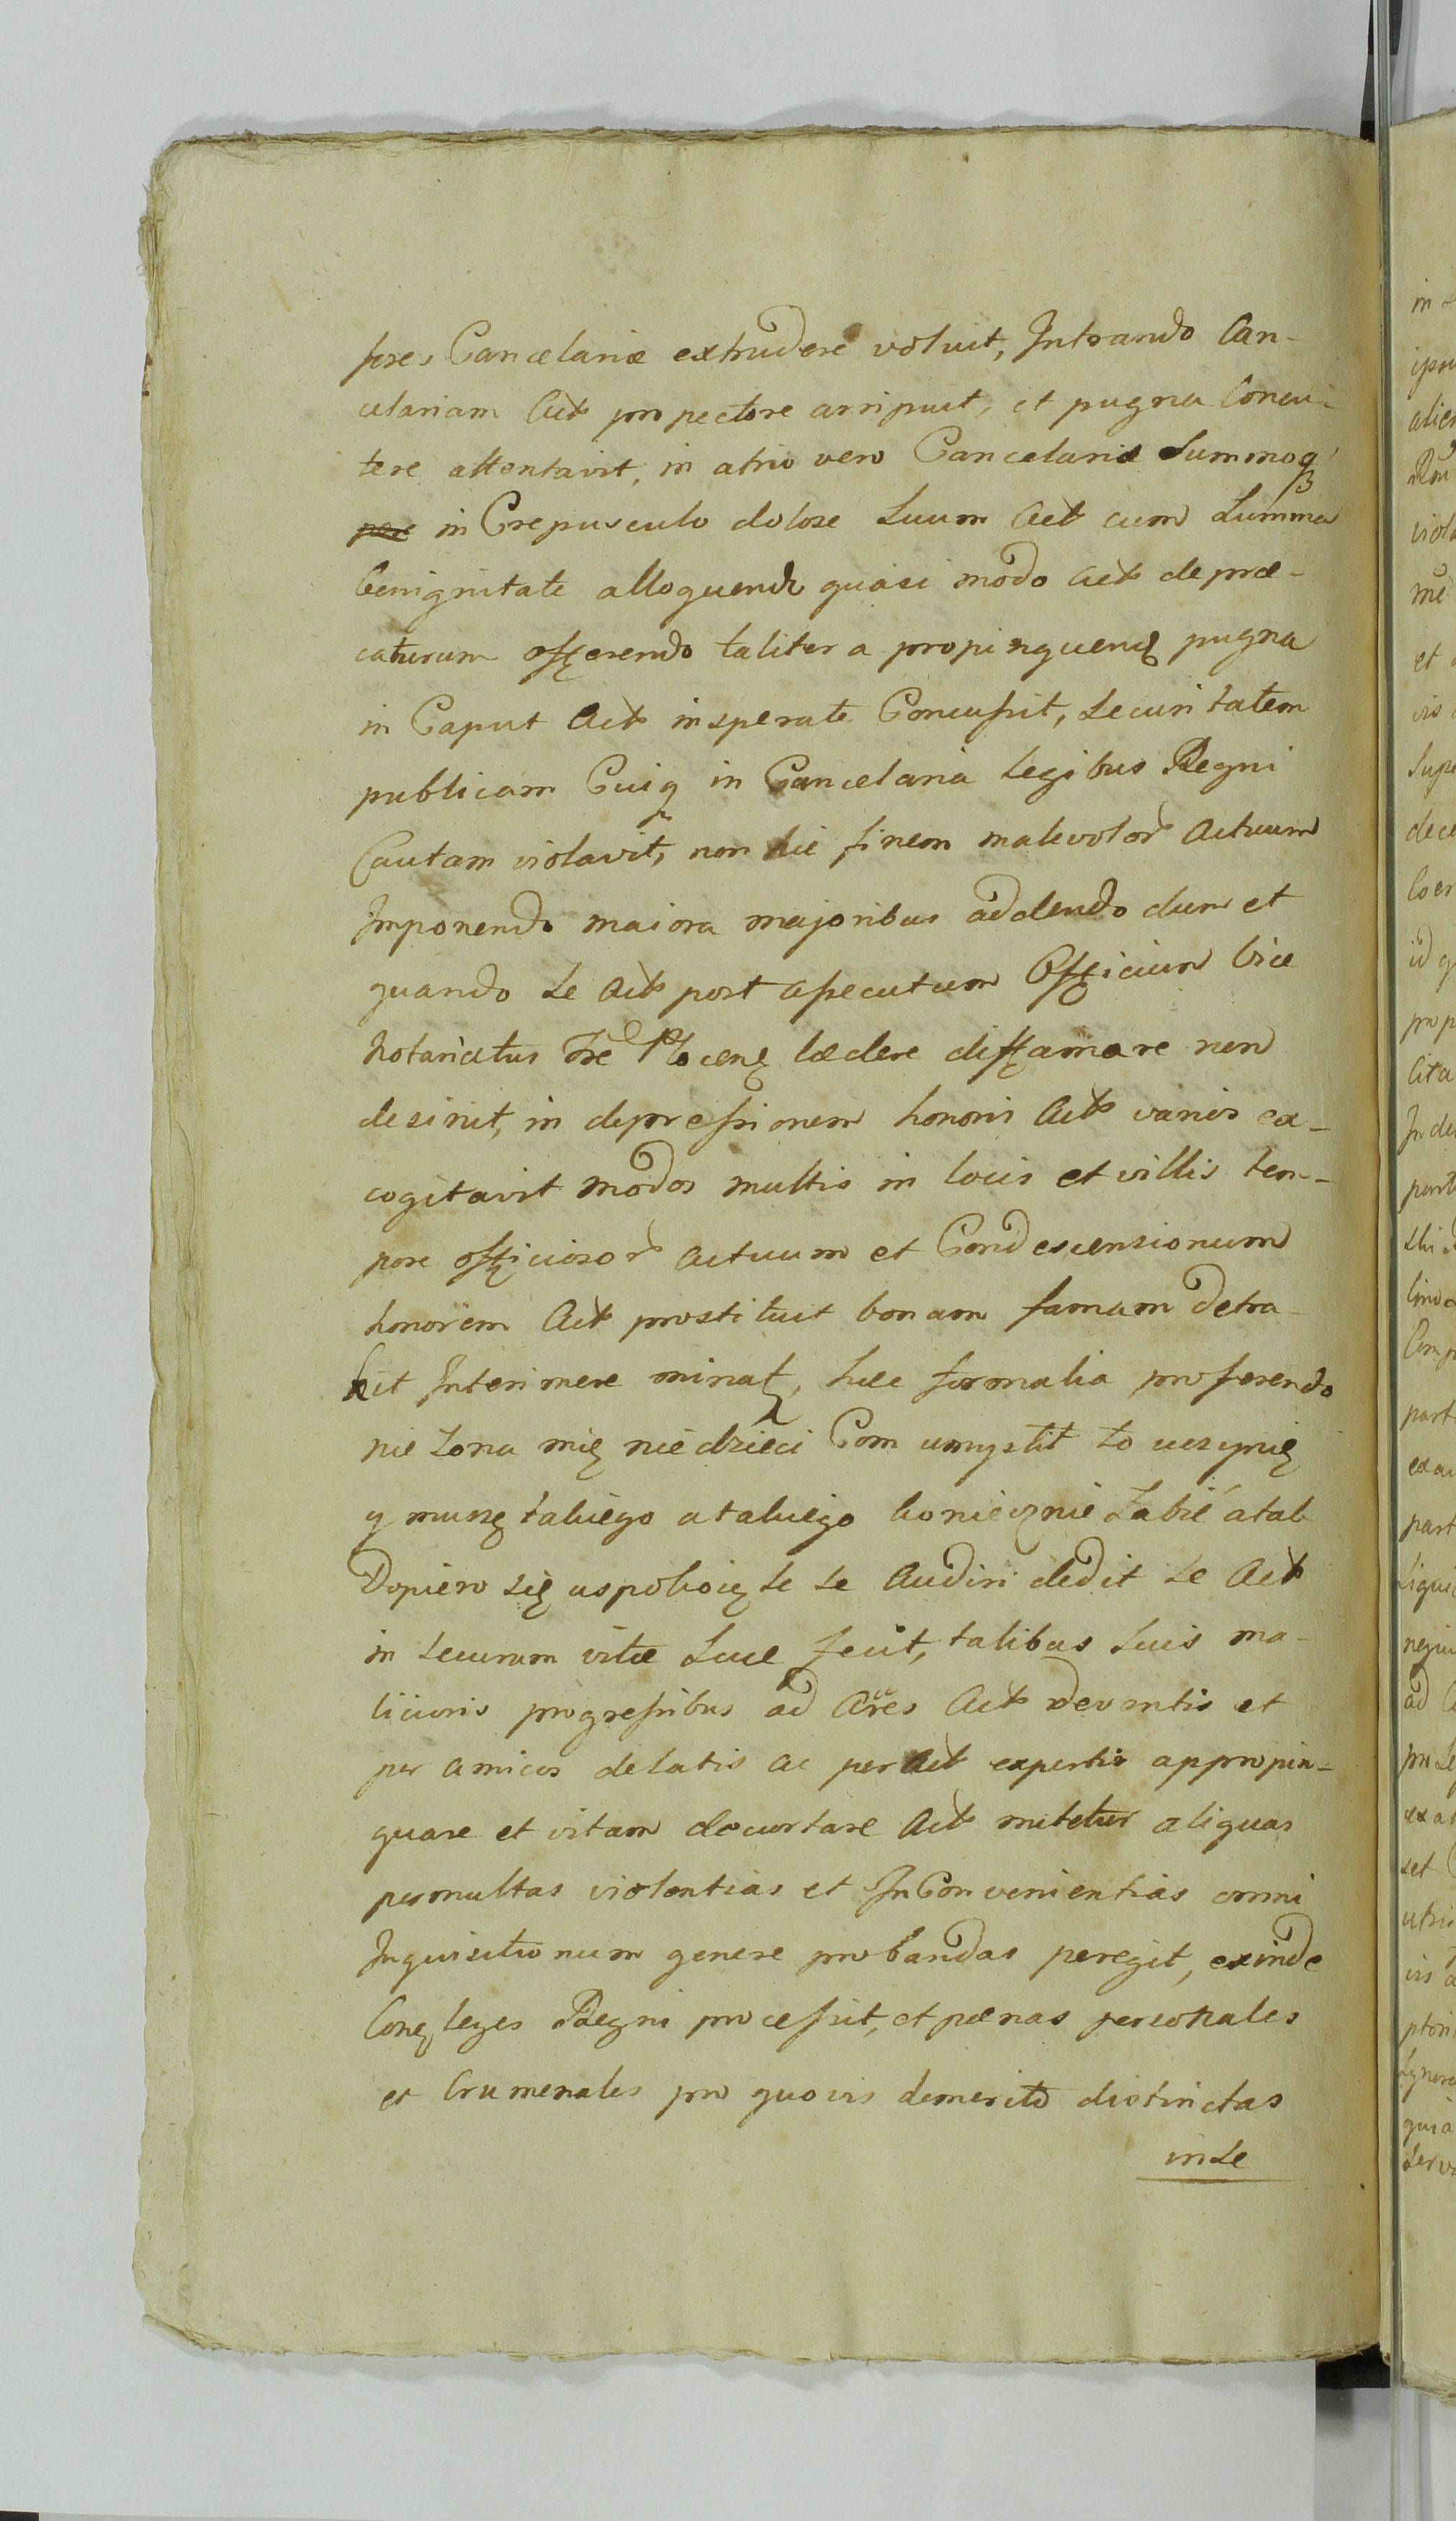 fores Cancelariæ extrudere voluit, Intrando Can-
celariam Act pro pectore arripuit, et pugna Concu-
tere attentavit, in atrio vero Cancelariæ Summoq
in Crepusculo dolose Suum Act cum Summa
benignitate alloquend quasi modo Act depræ-
caturum offerendo taliter a propinquend pugna
in Caput Act insperate Concussit, Securitatem
publicam Cuiq in Cancelaria legibus Regni
Cautam violavit, non hic finem malevolor Actuum
Imponendo maiora majoribus addendo dum et
quando Se Act post assecutum Officium Vice
Notariatus Tre Plocens lædere diffamare non
desinit, in depressionem honoris Act varios ex-
cogitavit modos multis in locis et villis tem-
pore officiosor Actuum et Condescensionum
honorem Act prostituit bonam famam detra-
hit Interimere minat, hæc formalia proferendo
nie zona mię nie dzieci Com umyslił to uczynię
y muszę takiego a takiego koniecznie Zabić a tak
Dopiero się uspokoię Se Se Audiri dedit Se Act
in Securum vitæ Suæ fecit, talibus Suis ma-
liciosis progressibus ad Ares Act deventis et
per amicos delatis ac per Act expertis appropin-
quare et vitam decurtare Act nititur aliquas
permultas violentias et InConvenientias omni
Inquisitionum genere probandas peregit, exinde
Conq leges Regni processit, et pænas personales
et Crumenales pro quovis demerito distinctas
in Se
in